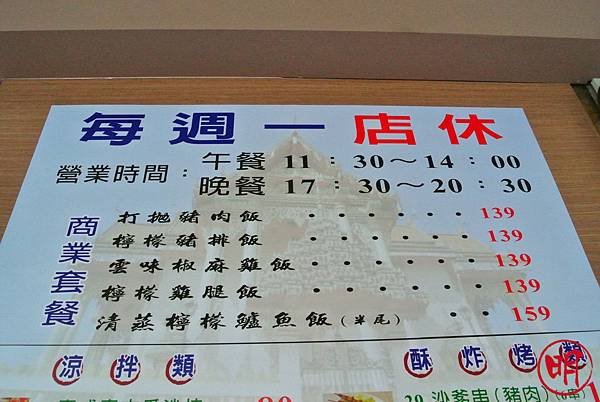 每週一店休
營業時間：午餐 11：30～14：00
晚餐 17：30～20：30
商業套餐
打拋豬肉飯・・・・・・139
檸檬豬排飯・・・・・・139
雲味椒麻雞飯・・・・・・139
檸檬雞腿飯・・・・・・139
清蒸檸檬鱸魚飯(半尾)・・159
涼拌類
酥炸烤類
20 沙爹串(豬肉)(6串)